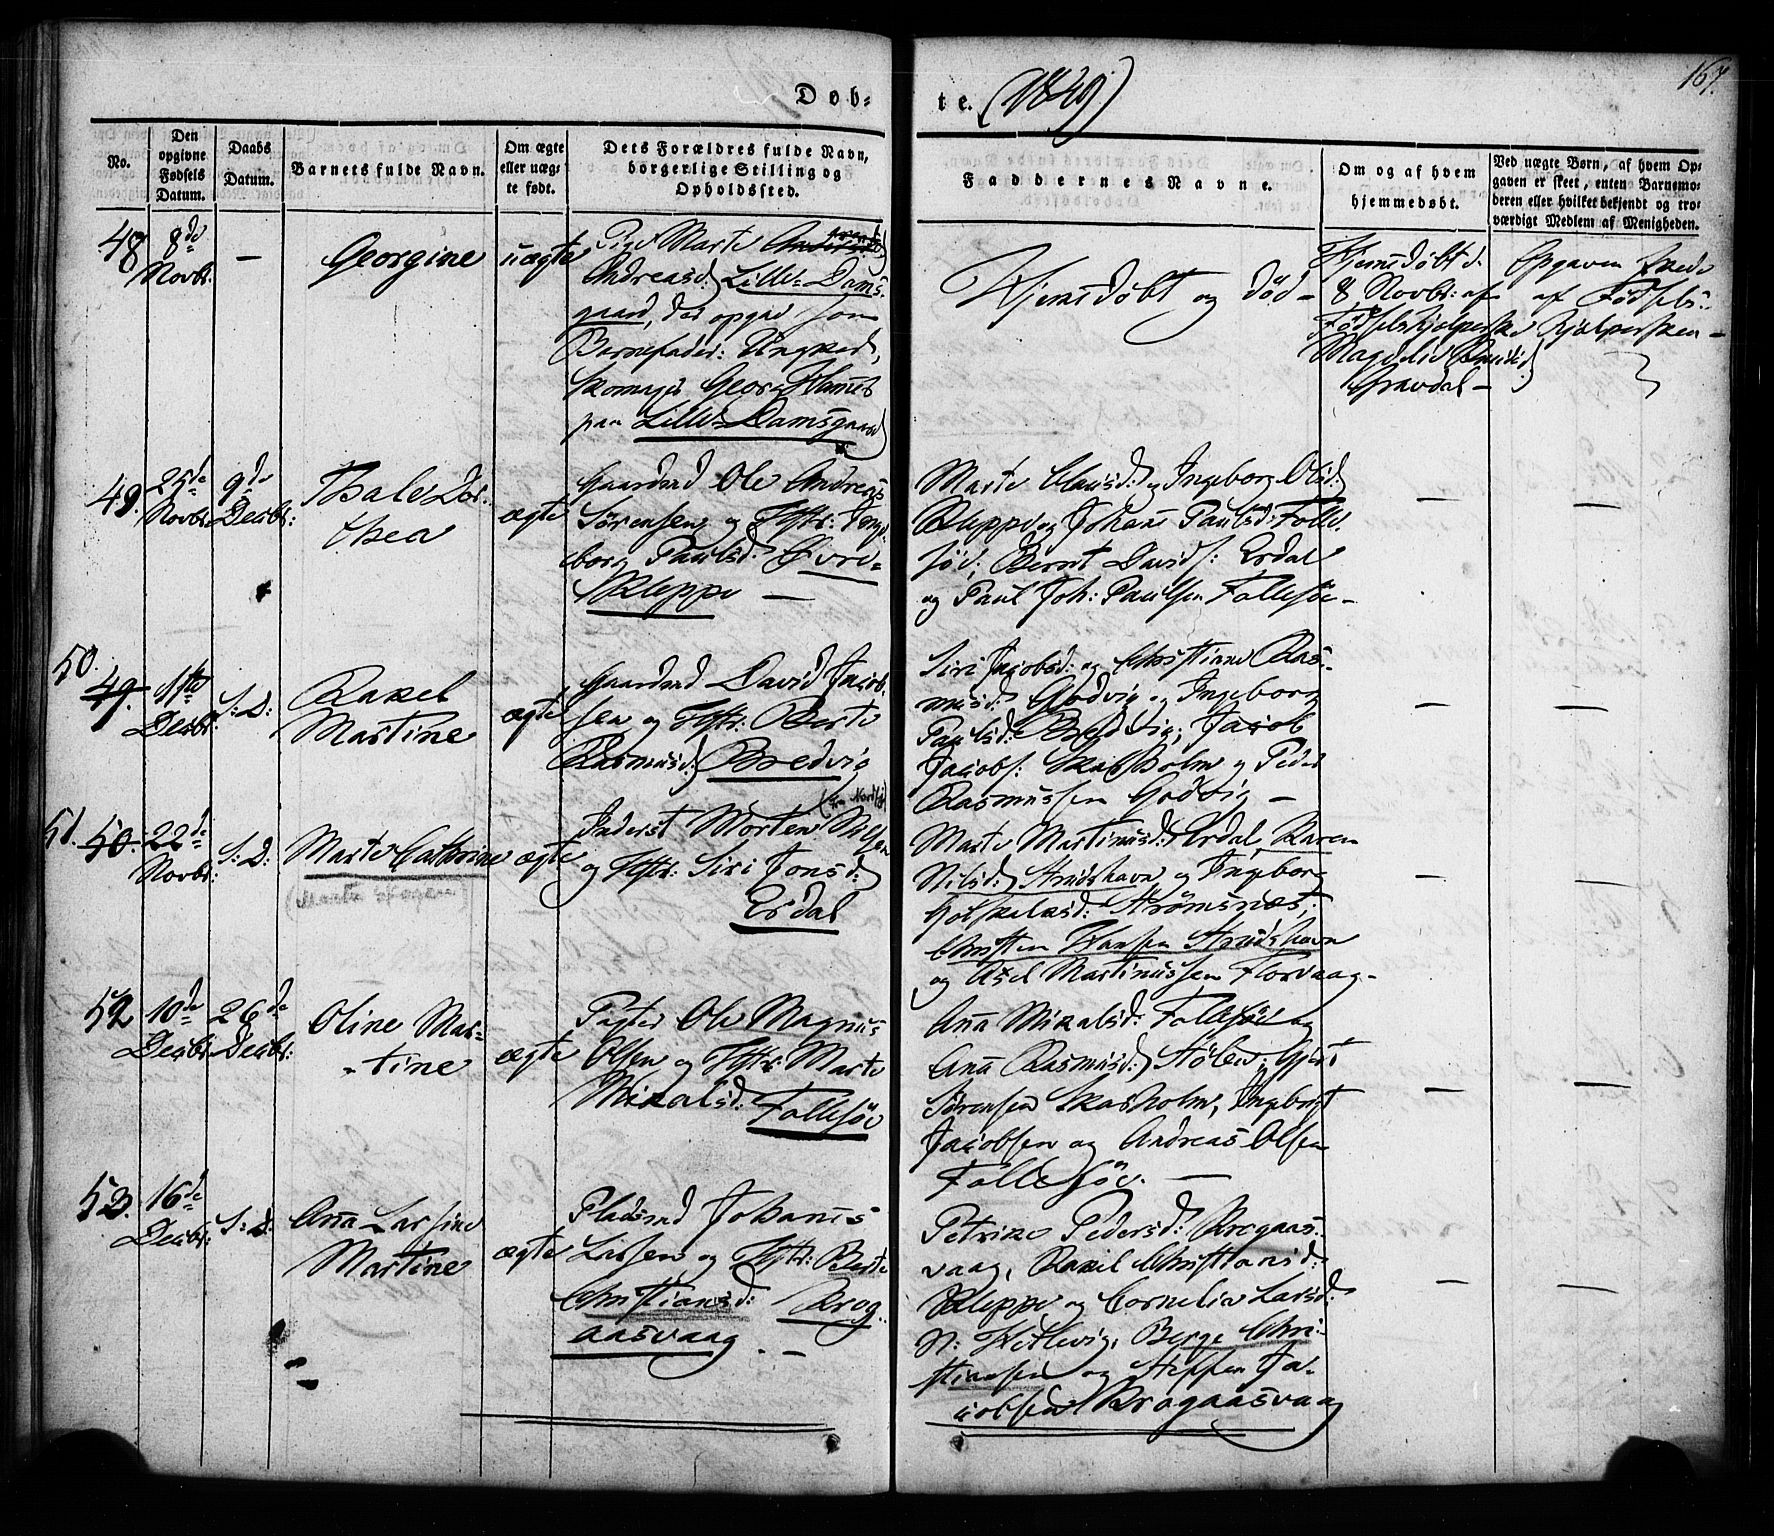 Døb-
te. (1849)
167.
No.
Den opgivne Fødsels Datum.
Daabs Datum.
Barnets fulde Navn.
Om ægte eller uægte født.
Dets Forældres fulde Navn, borgerlige Stilling og Opholdssted.
Faddernes Navne.
Om og af hvem hjemmedøbt.
Ved uægte Børn, af hvem Opgaven er skeet, enten Barnemoderen eller hvilket bekjendt og troværdigt Medlem af Menigheden.
48
8de
Novbr.
—
Georgine
uægte
Pige Marte
Andreasd: Lille Dams-
gaard, der opgav som
Barnefader: Ungkarl,
Skomager Georg
paa Lille Damsgaard
Hjemdøbt og død —
Hjemdøbt d.
8 Novbr: af
Fødselshjelperske
Gravdal —
Opgaven skede
af Fødsels-
hjelpersken —
49.
25de
Novbr.
9de
Decbr:
Thale Dor-
thea
ægte
Gaardmd Ole Andreas
Sørensen og Hstr: Inge-
borg Paulsd: Øvre-
Kleppe —
Marte Clausd: og Ingeborg Olsd:
Kleppe og Johans Paulsd: Folle-
søe; Bernt Davids: Erdal
og Paul Joh: Paulsen Follesøe —
—
—
50.
49.
1ste
Decbr.
S: D:
Raxel
Martine
ægte
Gaardmd David Jacob-
sen og Hstr: Berte
Rasmusd: Bredvig
Siri Jacobsd: og Christiane Ras-
musd: Godvig og Ingeborg
Paulsd: Bredvig; Jacob
Jacobs: Skarholm og Peder
Rasmussen Godvig —
—
—
51.
50.
22de
Novbr:
S: D:
Marte Cathrine
ægte
Inderst Morten Nilsen
og Hstr: Siri Jonsd:
Erdal
Marte Martinusd: Erdal, Karen
Nilsd: Strudshavn og Ingeborg
Strømsnæs;
Christen Hansen Strudshavn
og Axel Martinussen Florvaag —
—
—
52
10de
Decbr.
26de
Decbr:
Oline Mar-
tine
ægte
Ole Magnus
Olsen og Hstr: Marte
Mikalsd: Follesøe
Anna Mikalsd: Follesøe og
Anna Rasmusd: Støben; Gjert
Sørensen Skarholm, Ingbrigt
Jacobsen og Andreas Olsen
Follesøe. —
—
—
53.
16de
Decbr:
S: D:
Anna Larsine
Martine
ægte
Pladsmd Johannes
Larsen og Hstr: Berte
Christiansd: Krog-
aasvaag. —
Petrike Pedersd: Krogaas-
vaag, Raxel Christiansd:
Kleppe og Cornelia Larsd:
N: Hetlevig, Berge Chri-
stiansen og Steffen Ja-
cobsen Krogaasvaag
—
—